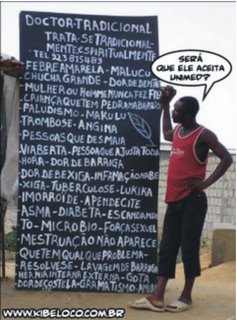 DOCTOR-TRADICIONAL
TRATA-SE TRADICIONAL-
MENTE E SPIRITUALMENTE
TEL 923
FEBRE AMARELA-MALUCU
CHUCHA GRANDE-DOR DE DENTE
MULHER OU HOMEM NUNCA FEZ FILHO
CRIANÇA QUE TEM PEDRA NA BARRIGA
PALUDISMO-MAKULU
TROMBOSE-ANGINA
PESSOAS QUE DESMAIA
VIABERTA-PESSOA QUE A JUSTA TODA
HORA-DOR DE BARRIGA
DOR DE BEXIGA-INFAMAÇÃO NA BE
XIGA-TUBERCULOSE-LUKIKA
IMOROIDE-APENDECITE
ASMA-DIABETA-ESCANDAMEN
TO-MICROBIO-FORÇA SEXUEL
MESTRUAÇÃO NÃO APARECE
QUE TEM QUALQUE PROBLEMA-
RESOLVESE-LAVAGEM DE BARRIGA
HERNIA INTERNA EXTERNA-GOTA
DOR DE COSTELA-GRAMATISMO-
SERÁ
QUE ELE ACEITA
UNIMED?
WWW.KIBELOCO.COM.BR